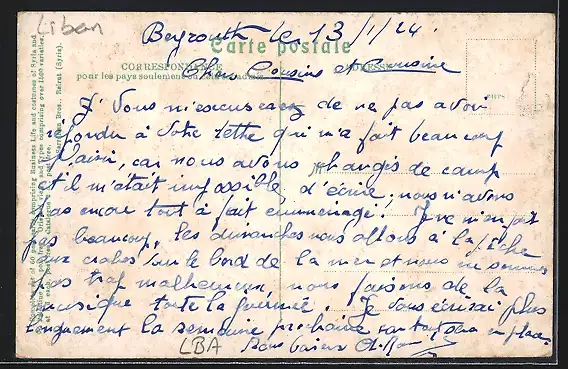 Liban
Beyrouth le 13/1/24.
Carte postale
CORRESPONDANCE ADRESSE
pour les pays soulement
Chers Cousins et Cousine
Vous m'escuserez de ne pas avoir
répondu à votre lettre qui m'a fait beaucoup
plaisir, car nous avons changés de camp
et il m'était impossible d'écrire, nous n'avons
pas encore tout à fait emménagé. Je ne m'en fait
pas beaucoup, les dimanches nous allons à la pêche
aux crabes sur le bord de la mer et nous ne sommes
pas trop malheureux, nous faisons de la
musique toute la journée. Je vous écrirai plus
longuement la semaine prochaine en place
LBA Bons baisers
comprising Business Life and costumes of Syria and
types comprising over 1000 varieties.
Sarrafian Bros. Beirut (Syria).